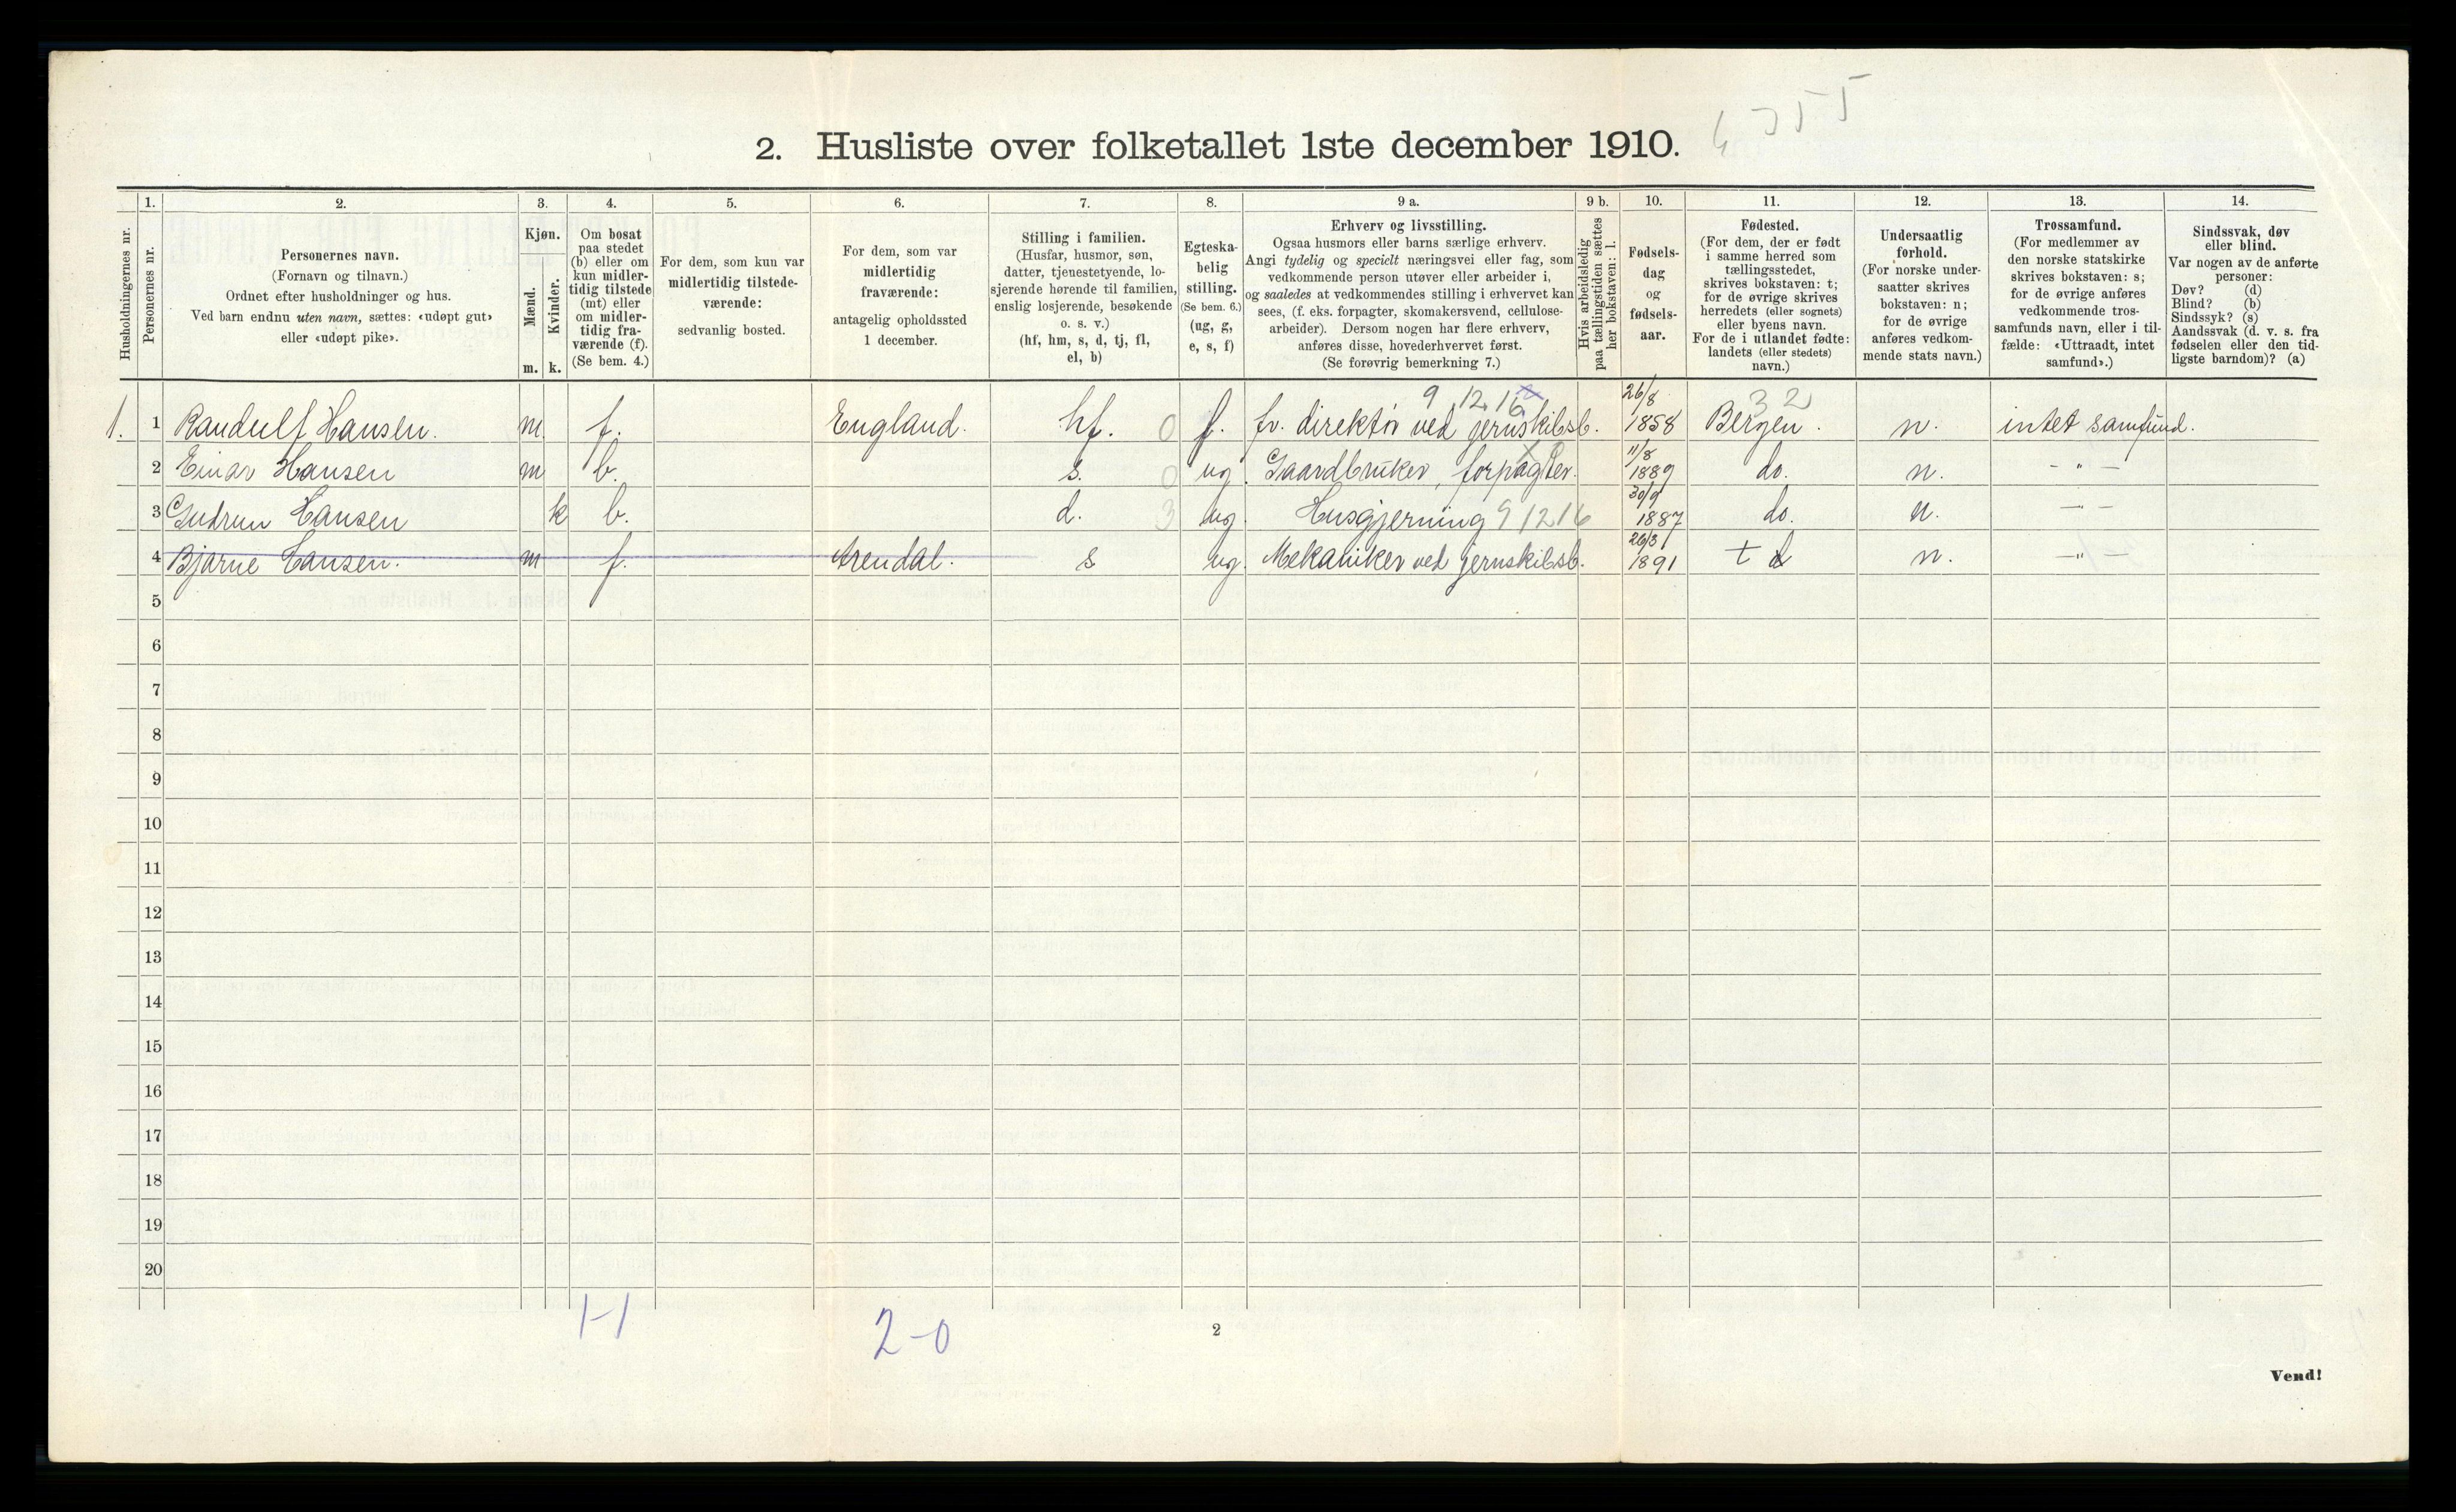 2. Husliste over folketallet 1ste december 1910.
Husholdningernes nr.
1.
Personernes nr.
2.
Personernes navn.
(Fornavn og tilnavn.)
Ordnet efter husholdninger og hus.
Ved barn endnu uten navn, sættes: «udøpt gut»
eller «udøpt pike».
3.
Kjøn.
Mænd.
Kvinder.
m. k.
4.
Om bosat
paa stedet
(b) eller om
kun midler-
tidig tilstede
(mt) eller
om midler-
tidig fra-
værende (f).
(Se bem. 4.)
5.
For dem, som kun var
midlertidig tilstede-
værende:
sedvanlig bosted.
6.
For dem, som var
midlertidig
fraværende:
antagelig opholdssted
1 december.
7.
Stilling i familien.
(Husfar, husmor, søn,
datter, tjenestetyende, lo-
sjerende hørende til familien,
enslig losjerende, besøkende
o. s. v.)
(hf, hm, s, d, tj, fl,
el, b)
8.
Egteska-
belig
stilling.
(Se bem. 6.)
(ug, g,
e, s, f)
9 a.
Erhverv og livsstilling.
Ogsaa husmors eller barns særlige erhverv.
Angi tydelig og specielt næringsvei eller fag, som
vedkommende person utøver eller arbeider i,
og saaledes at vedkommendes stilling i erhvervet kan
sees, (f. eks. forpagter, skomakersvend, cellulose-
arbeider). Dersom nogen har flere erhverv,
anføres disse, hovederhvervet først.
(Se forøvrig bemerkning 7.)
9 b.
Hvis arbeidsledig
paa tællingstiden sættes
her bokstaven: l.
10.
Fødsels-
dag
og
fødsels-
aar.
11.
Fødested.
(For dem, der er født
i samme herred som
tællingsstedet,
skrives bokstaven: t;
for de øvrige skrives
herredets (eller sognets)
eller byens navn.
For de i utlandet fødte:
landets (eller stedets)
navn.)
12.
Undersaatlig
forhold.
(For norske under-
saatter skrives
bokstaven: n;
for de øvrige
anføres vedkom-
mende stats navn.)
13.
Trossamfund.
(For medlemmer av
den norske statskirke
skrives bokstaven: s;
for de øvrige anføres
vedkommende tros-
samfunds navn, eller i til-
fælde: «Uttraadt, intet
samfund».)
14.
Sindssvak, døv
eller blind.
Var nogen av de anførte
personer:
Døv? (d)
Blind? (b)
Sindssyk? (s)
Aandssvak (d. v. s. fra
fødselen eller den tid-
ligste barndom)? (a)
9 12 16 26/8 32
1. 1 Randulf Hansen. m f. England. hf. 0 f. fv. direktör ved jernskibsb. 1858 Bergen. n. intet samfund.
2 Einar Hansen m b. s. 0 ug. Gaardbruker, forpagter. 11/8 1889 do. n. -"-
3 Gudrun Hansen k b. d. 3 ug. Husgjerning 9 12 16 30/9 1887 do. n. -"-
4 Bjarne Hansen. m f. Arendal. s ug. Mekaniker ved jernskibsb. 26/3 1891 t n. -"-
5
6
7
8
9
10
11
12
13
14
15
16
17
18
19
20
1-1
2-0
2
Vend!